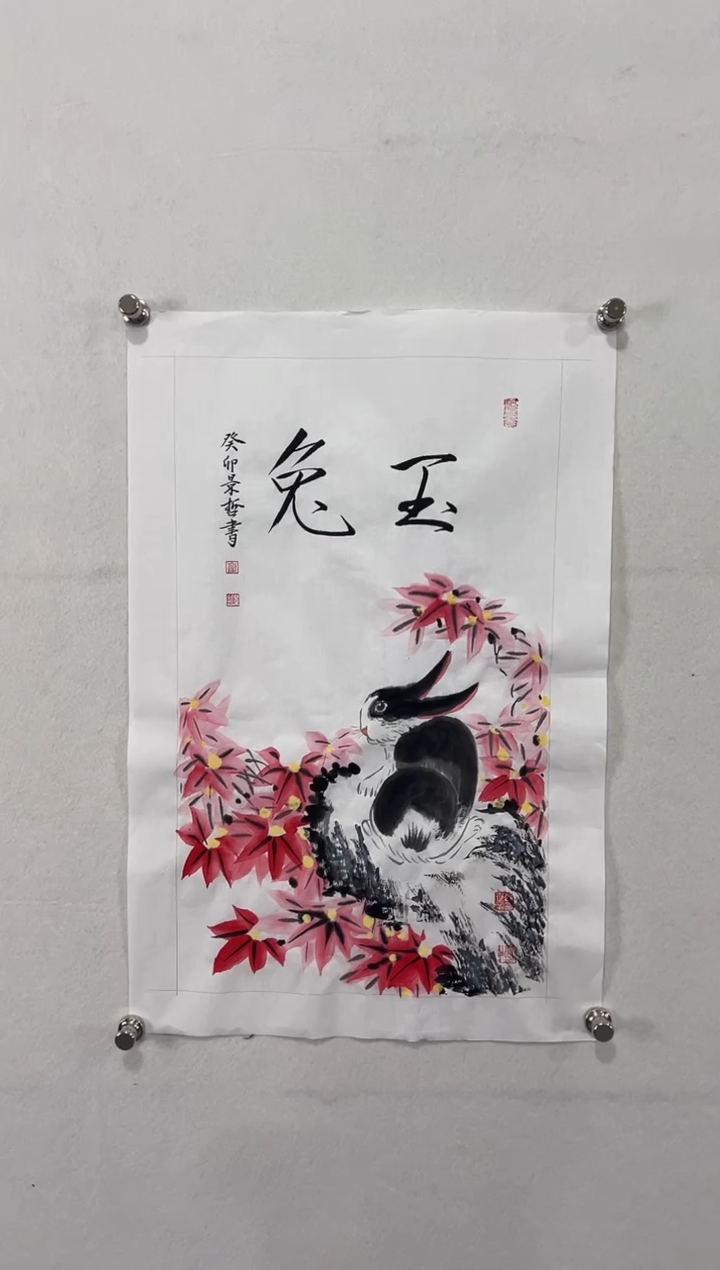 玉兔
癸卯景哲書